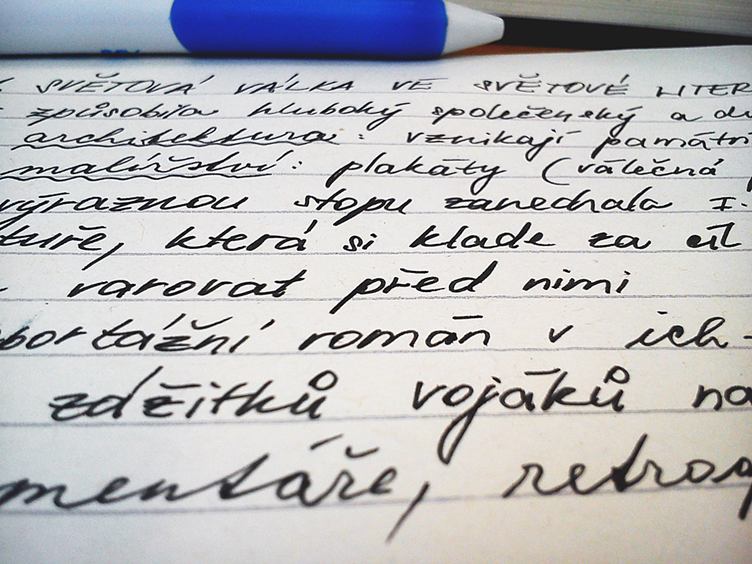 SVĚTOVÁ VÁLKA VE SVĚTOVÉ LITER
způsobila hluboký společenský a
architektura: vznikají památn
malířství: plakáty (válečná
výraznou stopu zanechala I.
tuře, která si klade za cíl
- varovat před nimi
portážní román v ich-
zážitků vojáků na
mentáře, retrosp